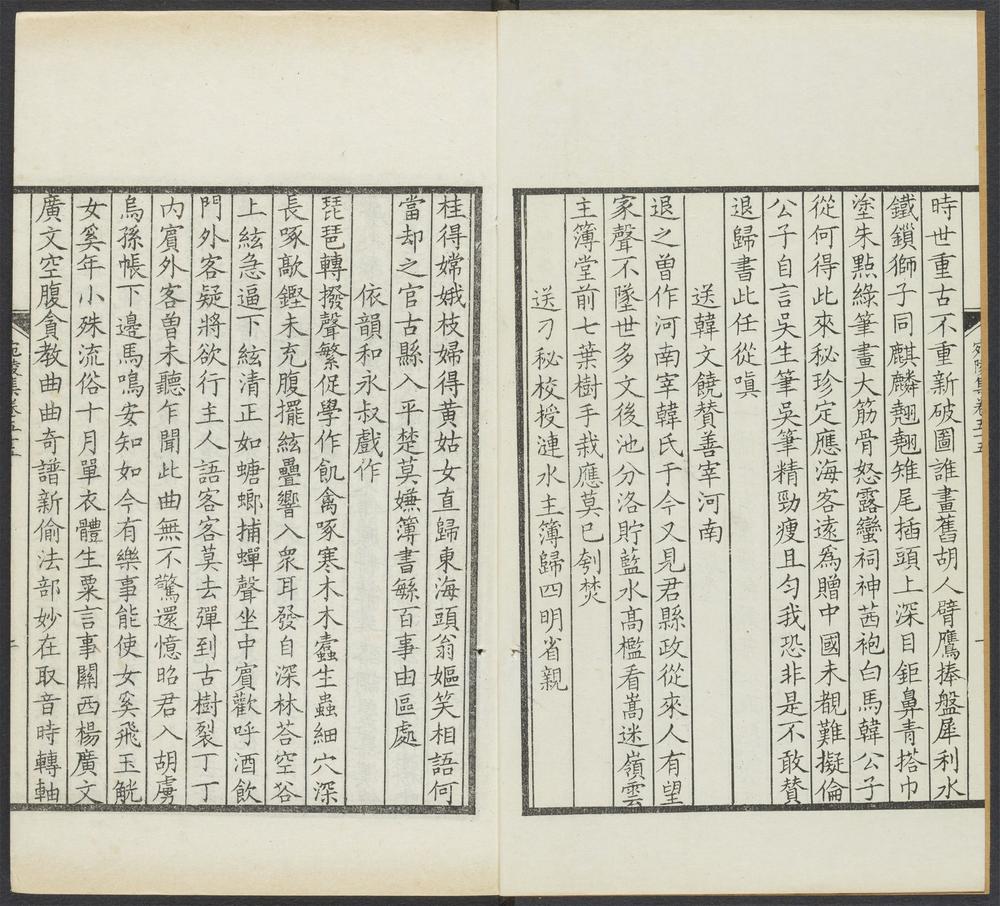 時世重古不重新破圖誰畫舊胡人臂鷹捧盤犀利水
鐵鎖獅子同麒麟翹翹雉尾插頭上深目鉅鼻青搭巾
塗朱點綠筆畫大筋骨怒露蠻祠神茜袍白馬韓公子
從何得此來秘珍定應海客遠爲贈中國未覩難擬倫
公子自言吳生筆吳筆精勁瘦且勻我恐非是不敢贊
退歸書此任從嗔
送韓文饒贊善宰河南
退之曾作河南宰韓氏于今又見君縣政從來人有望
家聲不墜世多文後池分洛貯藍水高檻看嵩迷嶺雲
主簿堂前七葉樹手栽應莫已刳焚
送刁秘校授漣水主簿歸四明省親
桂得嫦娥枝婦得黃姑女直歸東海頭翁嫗笑相語何
當却之官古縣入平楚莫嫌簿書緐百事由區處
依韻和永叔戲作
琵琶轉撥聲繁促學作飢禽啄寒木木蠹生蟲細穴深
長啄敲鏗未充腹擺絃疊響入衆耳發自深林荅空谷
上絃急逼下絃清正如螗螂捕蟬聲坐中賓歡呼酒飲
門外客疑將欲行主人語客客莫去彈到古樹裂丁丁
內賓外客曾未聽乍聞此曲無不驚還憶昭君入胡虜
烏孫帳下邊馬鳴安知如今有樂事能使女奚飛玉觥
女奚年小殊流俗十月單衣體生粟言事關西楊廣文
廣文空腹貪教曲曲奇譜新偷法部妙在取音時轉軸